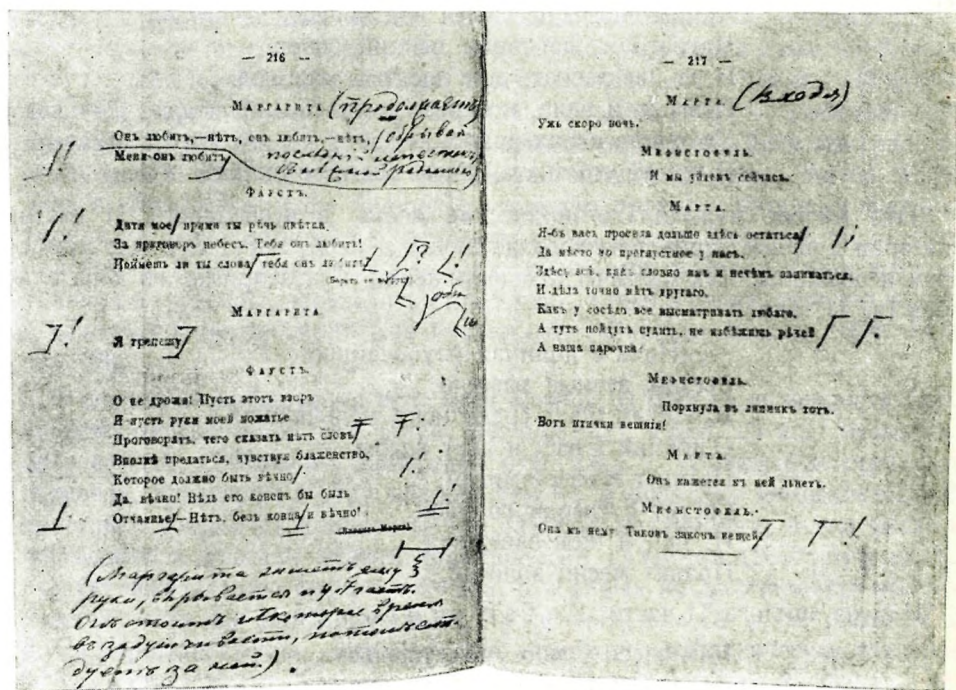 — 216 —
Маргарита (продолжаетъ)
Онъ любитъ,—нѣтъ, онъ любитъ,—нѣтъ, (обрывая
Меня онъ любитъ последній лепестокъ,
съ нѣжной радостью)
!
Фаустъ.
Дитя мое прими ты рѣчь цвѣтка
!
За приговоръ небесъ. Тебя онъ любитъ!
Поймешь ли ты слова тебя онъ любитъ ? !
(Беретъ ее руки)
обѣ
Маргарита
Я трепещу
!
Фаустъ.
О не дрожи! Пусть этотъ взоръ
И пусть руки моей пожатье
Проговорятъ, чего сказать нѣтъ словъ :
Вполнѣ предаться, чувствуя блаженство,
Которое должно быть вѣчно !
Да, вѣчно! Вѣдь его конецъ бы былъ
Отчаянье—Нѣтъ, безъ конца и вѣчно! !
(Маргарита жметъ ему
руки, вырывается и убѣгаетъ.
Онъ стоитъ нѣкоторое время
въ задумчивости, потомъ слѣ-
дуетъ за ней.)
— 217 —
Марта. (входя)
Ужь скоро ночь.
Мефистофель.
И мы уйдемъ сейчасъ.
Марта.
Я-бъ васъ просила дольше здѣсь остаться ;
Да мѣсто но прегнустное у насъ.
Здѣсь всѣ, какъ словно имъ и нечѣмъ заниматься,
И дѣла точно нѣтъ другаго,
Какъ у сосѣда все высматривать любаго.
А тутъ пойдутъ судить, не избѣжишь рѣчей .
А наша парочка
Мефистофель.
Порхнула въ липникъ тотъ.
Вотъ птички вешнія!
Марта.
Онъ кажется къ ней льнетъ.
Мефистофель.
Она къ нему. Таковъ законъ вещей !